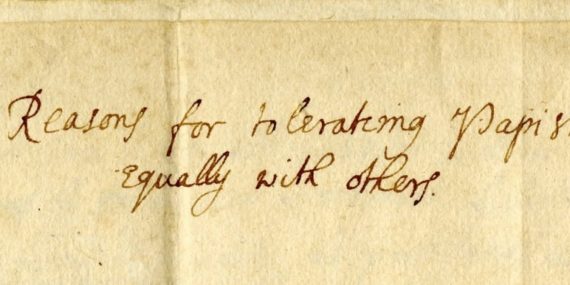 Reasons for tolerateing Papis
Equally with others.